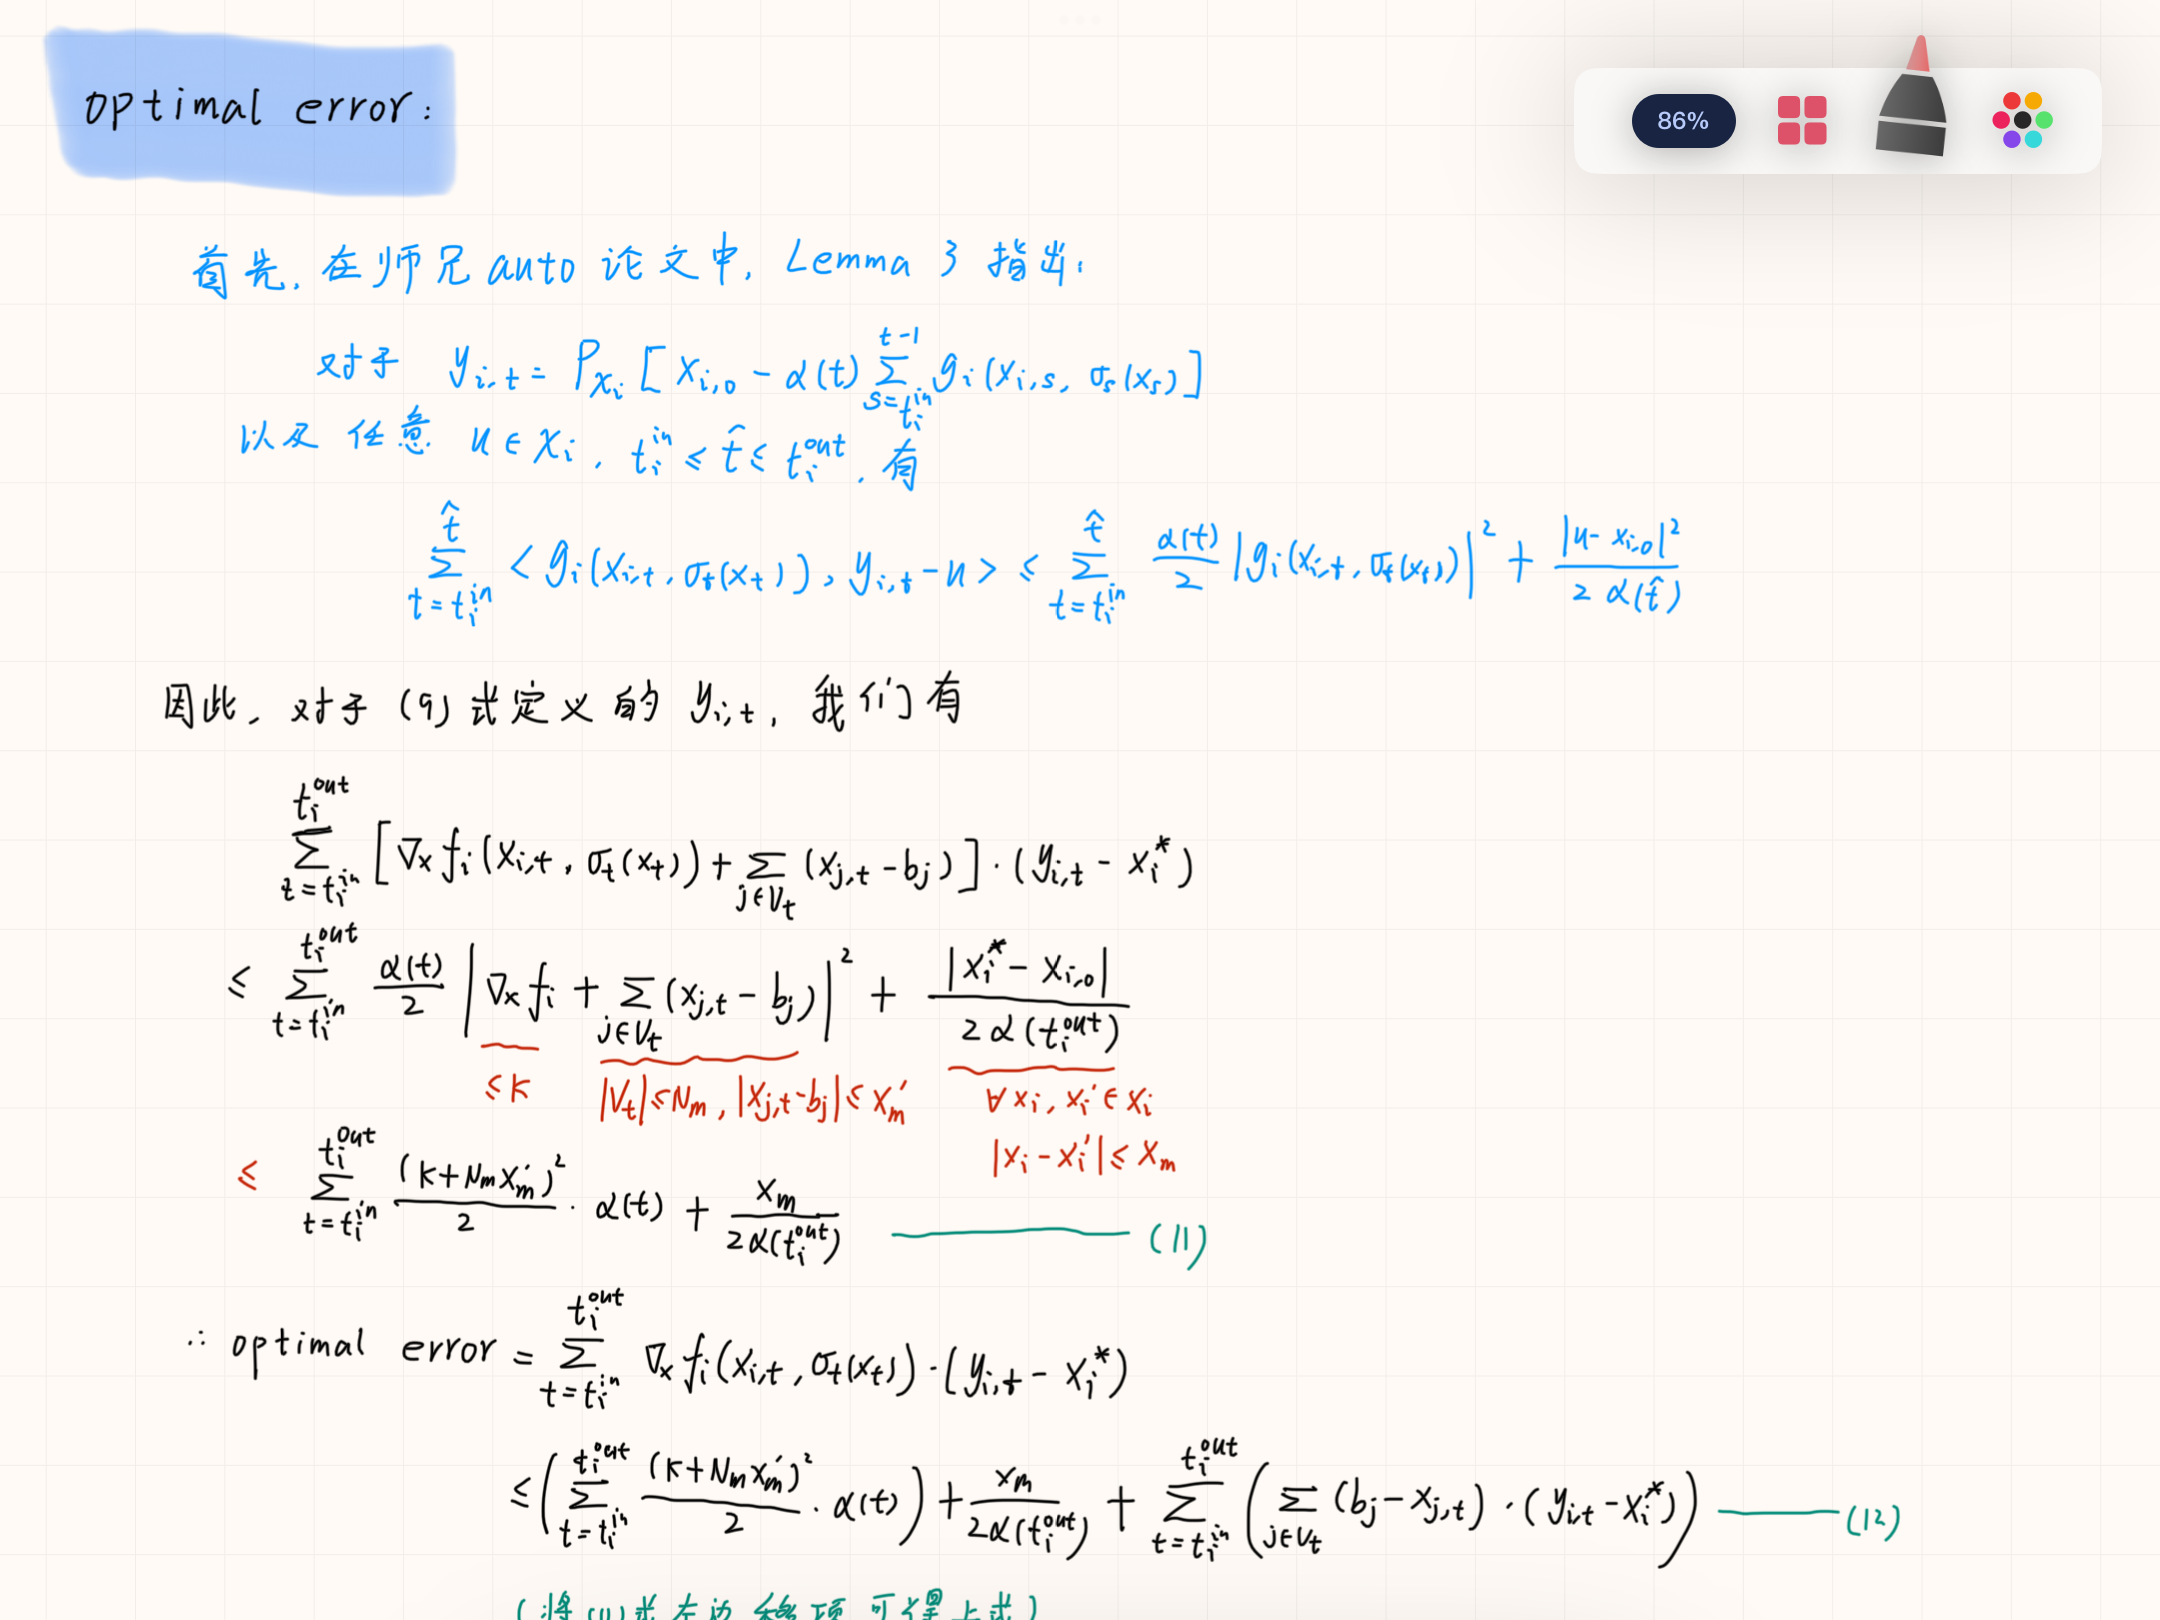 86%
optimal error:
首先, 在师兄 auto 论文中, Lemma 3 指出:
对于 y_{i,t} = P_{X_i} [ x_{i,0} - α(t) \sum_{s=t_i^{in}}^{t-1} g_i(x_{i,s}, σ_s(x_s) ]
以及 任意 u ∈ X_i, t_i^{in} ≤ \hat{t} ≤ t_i^{out}, 有
\sum_{t=t_i^{in}}^{\hat{t}} < g_i(x_{i,t}, σ_t(x_t)), y_{i,t} - u > ≤ \sum_{t=t_i^{in}}^{\hat{t}} \frac{α(t)}{2} |g_i(x_{i,t}, σ_t(x_t))|^2 + \frac{|u - x_{i,0}|^2}{2 α(\hat{t})}
因此, 对于 (9) 式定义的 y_{i,t}, 我们有
\sum_{t=t_i^{in}}^{t_i^{out}} [ ∇_x f_i(x_{i,t}, σ_t(x_t)) + \sum_{j∈V_t} (x_{j,t} - b_j) ] · (y_{i,t} - x_i^*)
≤ \sum_{t=t_i^{in}}^{t_i^{out}} \frac{α(t)}{2} | ∇_x f_i + \sum_{j∈V_t} (x_{j,t} - b_j) |^2 + \frac{|x_i^* - x_{i,0}|}{2 α(t_i^{out})}
≤ K |V_t| ≤ N_m, |x_{j,t} - b_j| ≤ x_m' ∀ x_i, x_i' ∈ X_i
|x_i - x_i'| ≤ x_m
≤ \sum_{t=t_i^{in}}^{t_i^{out}} \frac{(K + N_m x_m')^2}{2} · α(t) + \frac{x_m}{2α(t_i^{out})} —— (11)
∴ optimal error = \sum_{t=t_i^{in}}^{t_i^{out}} ∇_x f_i(x_{i,t}, σ_t(x_t)) · (y_{i,t} - x_i^*)
≤ ( \sum_{t=t_i^{in}}^{t_i^{out}} \frac{(K + N_m x_m')^2}{2} · α(t) ) + \frac{x_m}{2α(t_i^{out})} + \sum_{t=t_i^{in}}^{t_i^{out}} ( \sum_{j∈V_t} (b_j - x_{j,t}) · (y_{i,t} - x_i^*) ) —— (12)
(将(11)式左边移项可得上式)